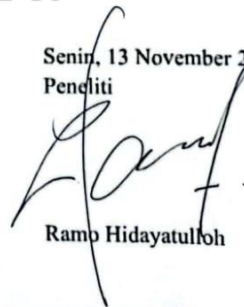 Senin, 13 November 2
Peneliti
Ramo Hidayatulloh